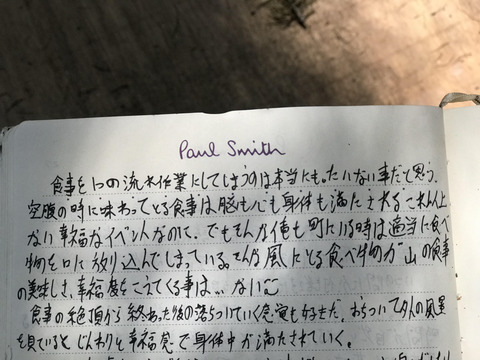 Paul Smith
食事を1つの流れ作業にしてしまうのは本当にもったいない事だと思う。
空腹の時に味わっている食事は脳も心も身体も満たされるこれ以上
ない幸福なイベントなのに、でもそんな俺も町にいる時は適当に食べ
物を口に放り込んでしまっている。そんな風にとる食べ物が山の食事
の美味しさ、幸福度をこえてくる事は、、ない
食事の絶頂から終わった後の落ちついていく感覚も好きだ。おちついて外の風景
を見ているとじんわりと幸福感で身体中が満たされていく。